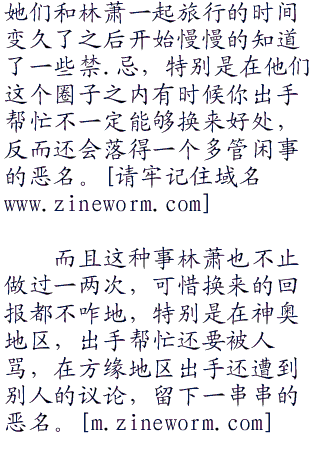 她们和林萧一起旅行的时间
变久了之后开始慢慢的知道
了一些禁.忌，特别是在他们
这个圈子之内有时候你出手
帮忙不一定能够换来好处，
反而还会落得一个多管闲事
的恶名。[请牢记住域名
www.zineworm.com]
而且这种事林萧也不止
做过一两次，可惜换来的回
报都不咋地，特别是在神奥
地区，出手帮忙还要被人
骂，在方缘地区出手还遭到
别人的议论，留下一串串的
恶名。[m.zineworm.com]